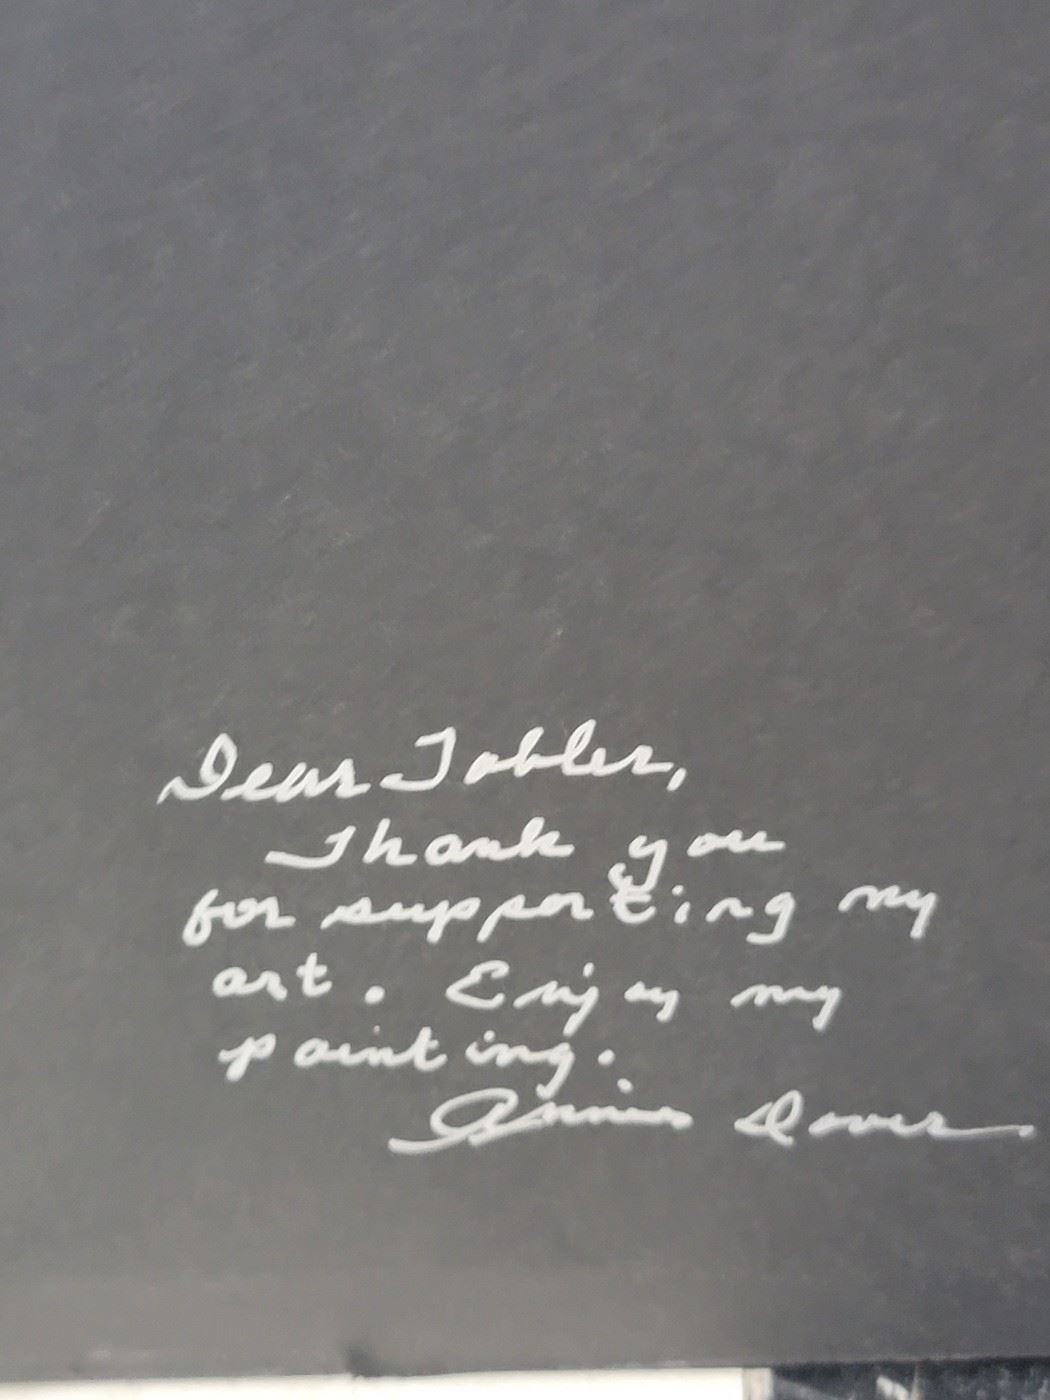 Dear Tobler,
Thank you
for supporting my
art. Enjoy my
painting.
Annie Dover